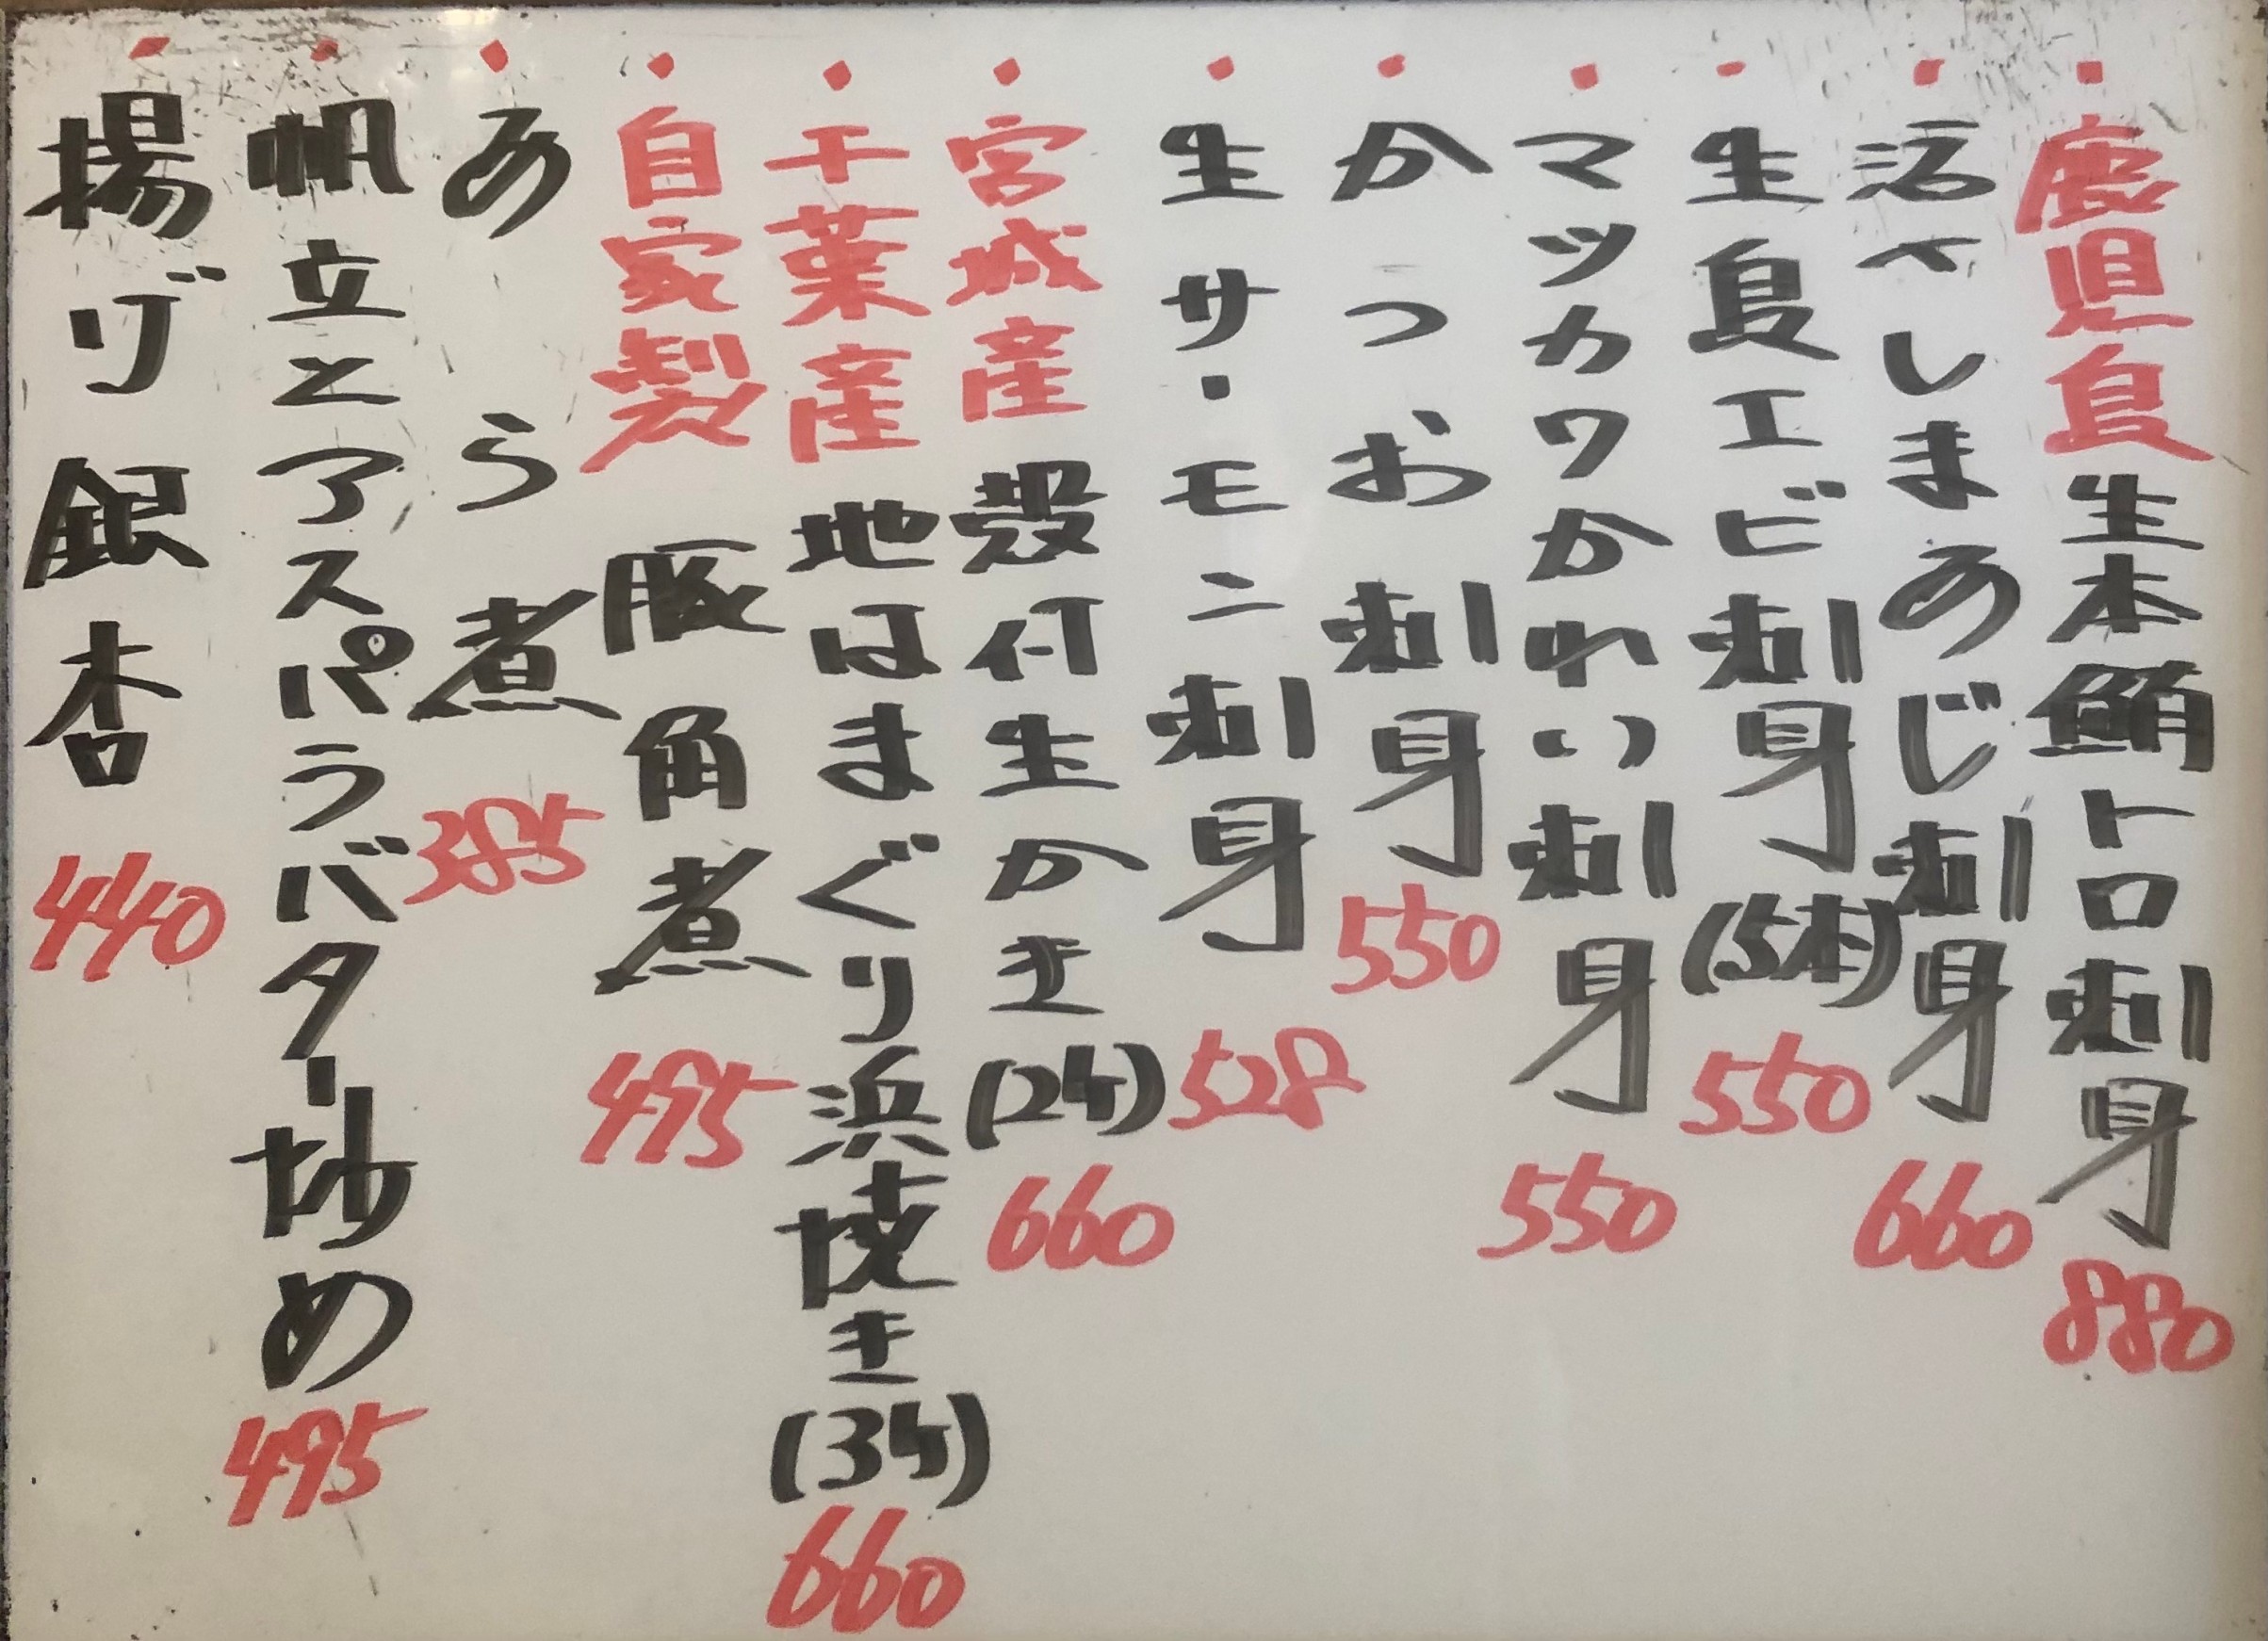 ・鹿児島生本鮪トロ刺身 880
・活〆しまあじ刺身 660
・生島エビ刺身(5本) 550
・マツカワかれい刺身 550
・かつお刺身 550
・生サーモン刺身 528
・宮城産殻付生かき(2ケ) 660
・千葉産地はまぐり浜焼き(3ケ) 660
・自家製豚角煮 495
・あら煮 385
・帆立とアスパラバター炒め 495
・揚げ銀杏 440